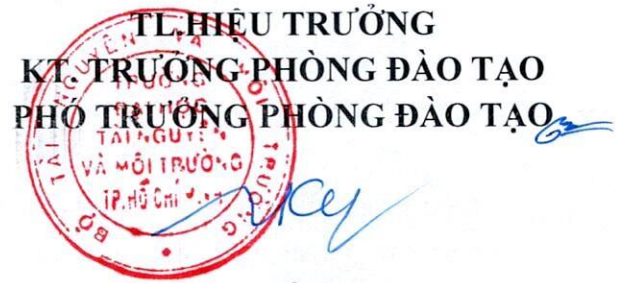 TL.HIỆU TRƯỞNG
KT. TRƯỞNG PHÒNG ĐÀO TẠO
PHÓ TRƯỞNG PHÒNG ĐÀO TẠO
BỘ TÀI NGUYÊN VÀ MÔI TRƯỜNG
TRƯỜNG
ĐẠI HỌC
TÀI NGUYÊN
VÀ MÔI TRƯỜNG
TP.HỒ CHÍ